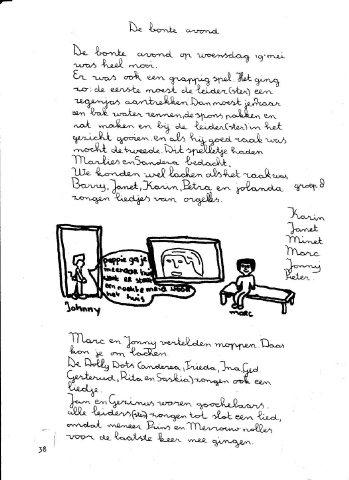 De bonte avond
De bonte avond op woensdag 19 mei
was heel mooi.
Er was ook een grappig spel. Het ging
zo: de eerste moest de leider(ster) een
regenjas aantrekken. Dan moest je naar
een bak water rennen, de spons pakken en
nat maken en bij de leider(ster) in het
gezicht gooien. en als hij goed raak was
mocht de tweede. Dit spelletje hadden
Marlies en Sandera bedacht.
We konden wel lachen als het raak was
Barry, Janet, Karin, Petra en jolanda
zongen liedjes van orgels.
groep 8
Karin
Janet
Minet
Marc
Jonny
Peter
pappie ga je
mee naar huis
want er staat
een naakte meid voor
het huis
Johnny
marc
Marc en Jonny vertelden moppen. Daar
kon je om lachen
De Dolly Dots (anderea, Frieda, Ina,
Gerterud, Rita en Saskia) zongen ook een
liedje.
Jan en Gerinus waren goochelaars.
alle leiders(ses) zongen tot slot een lied,
omdat meneer Prins en Mevrouw nolles
voor de laatste keer mee gingen.
38